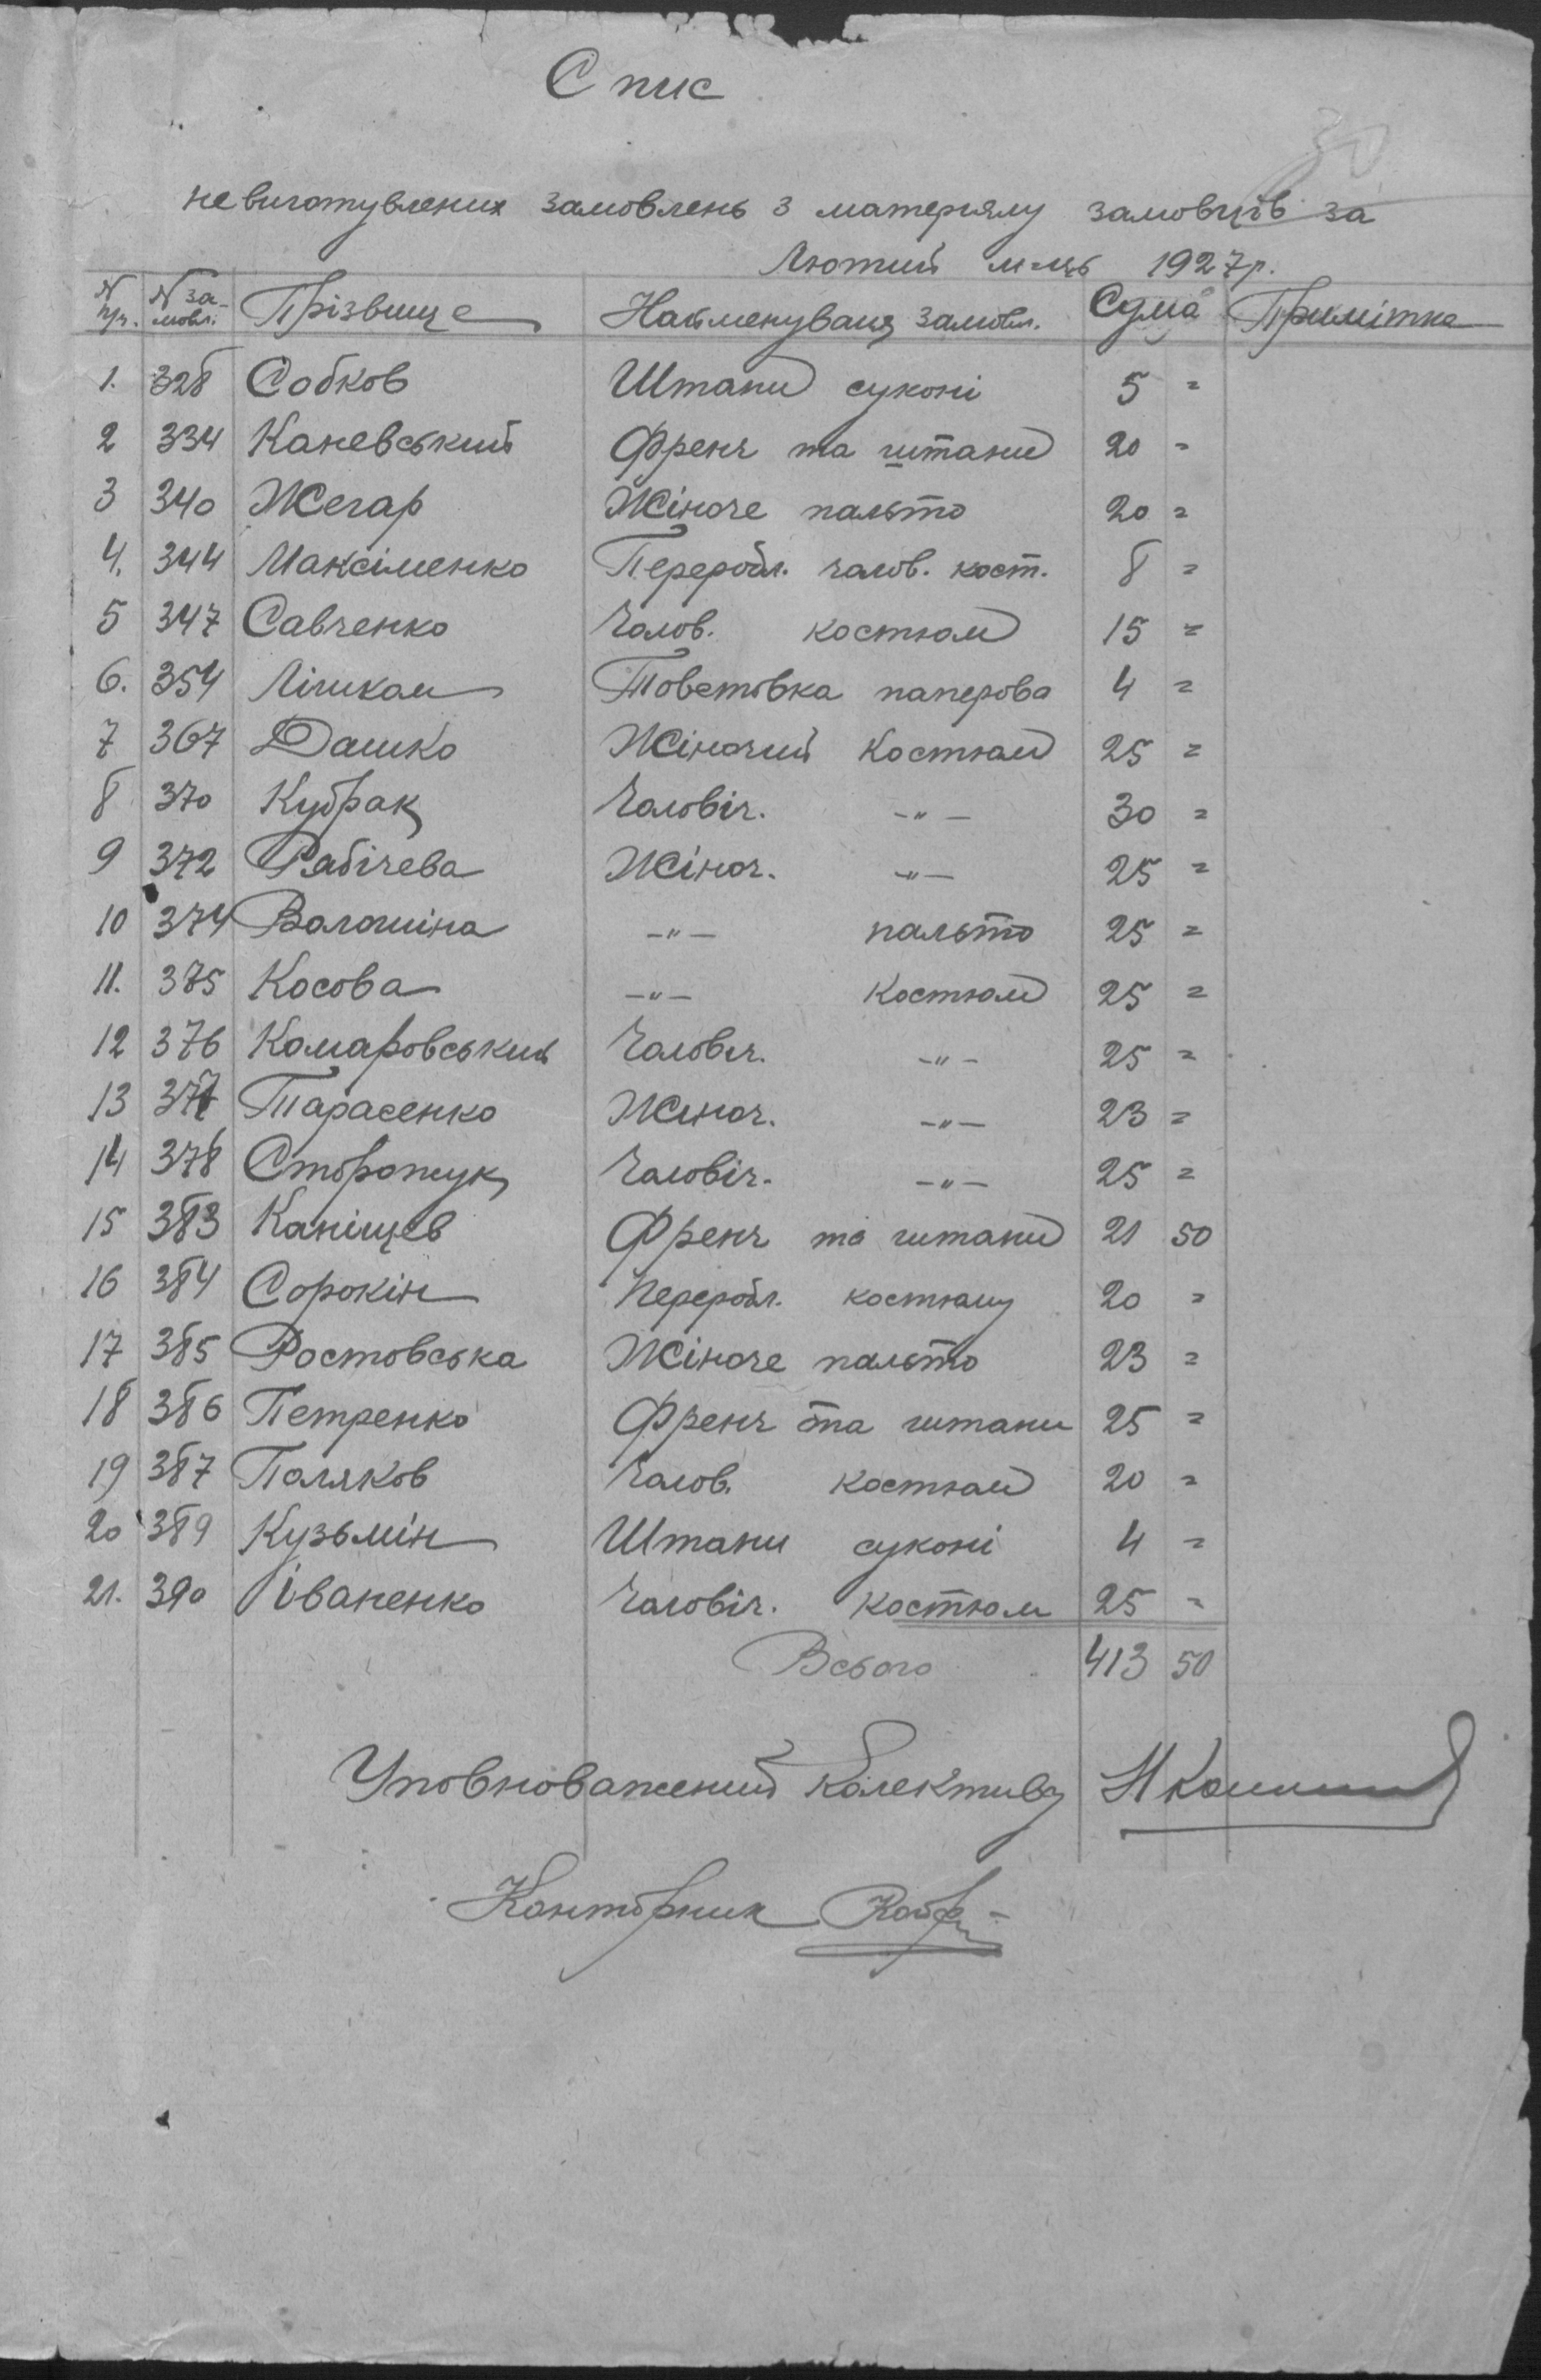 30
Спис
невиготувлених замовлень з матеріялу замовців за
Лютий м-ць 1927р.
N п/ч. N замовл. Прізвище Найменуваня замовл. Сума Примітка
1. 328 Собков Штани суконі 5 =
2 334 Каневський Френч та штани 20 =
3 340 Жегар Жіноче пальто 20 =
4. 344 Максіменко Переробл. чолов. кост. 8 =
5 347 Савченко Чолов. костюм 15 =
6. 354 Лішкам Товстовка паперова 4 =
7 367 Дашко Жіночий костюм 25 =
8 370 Кубрак Чоловіч. -"- 30 =
9 372 Рабічева Жіноч. -"- 25 =
10 374 Волошіна -"- пальто 25 =
11. 375 Косова -"- костюм 25 =
12 376 Комаровський Чоловіч. -"- 25 =
13 377 Тарасенко Жіноч. -"- 23 =
14 378 Сторожук Чоловіч. -"- 25 =
15 383 Каніщев Френч та штани 21 50
16 384 Сорокін Переробл. костюму 20 =
17 385 Ростовська Жіноче пальто 23 =
18 386 Петренко Френч та штани 25 =
19 387 Поляков Чолов. костюм 20 =
20 389 Кузьмін Штани суконі 4 =
21. 390 Іваненко Чоловіч. костюм 25 =
Всього 413 50
Уповноважений колективу
Конторник